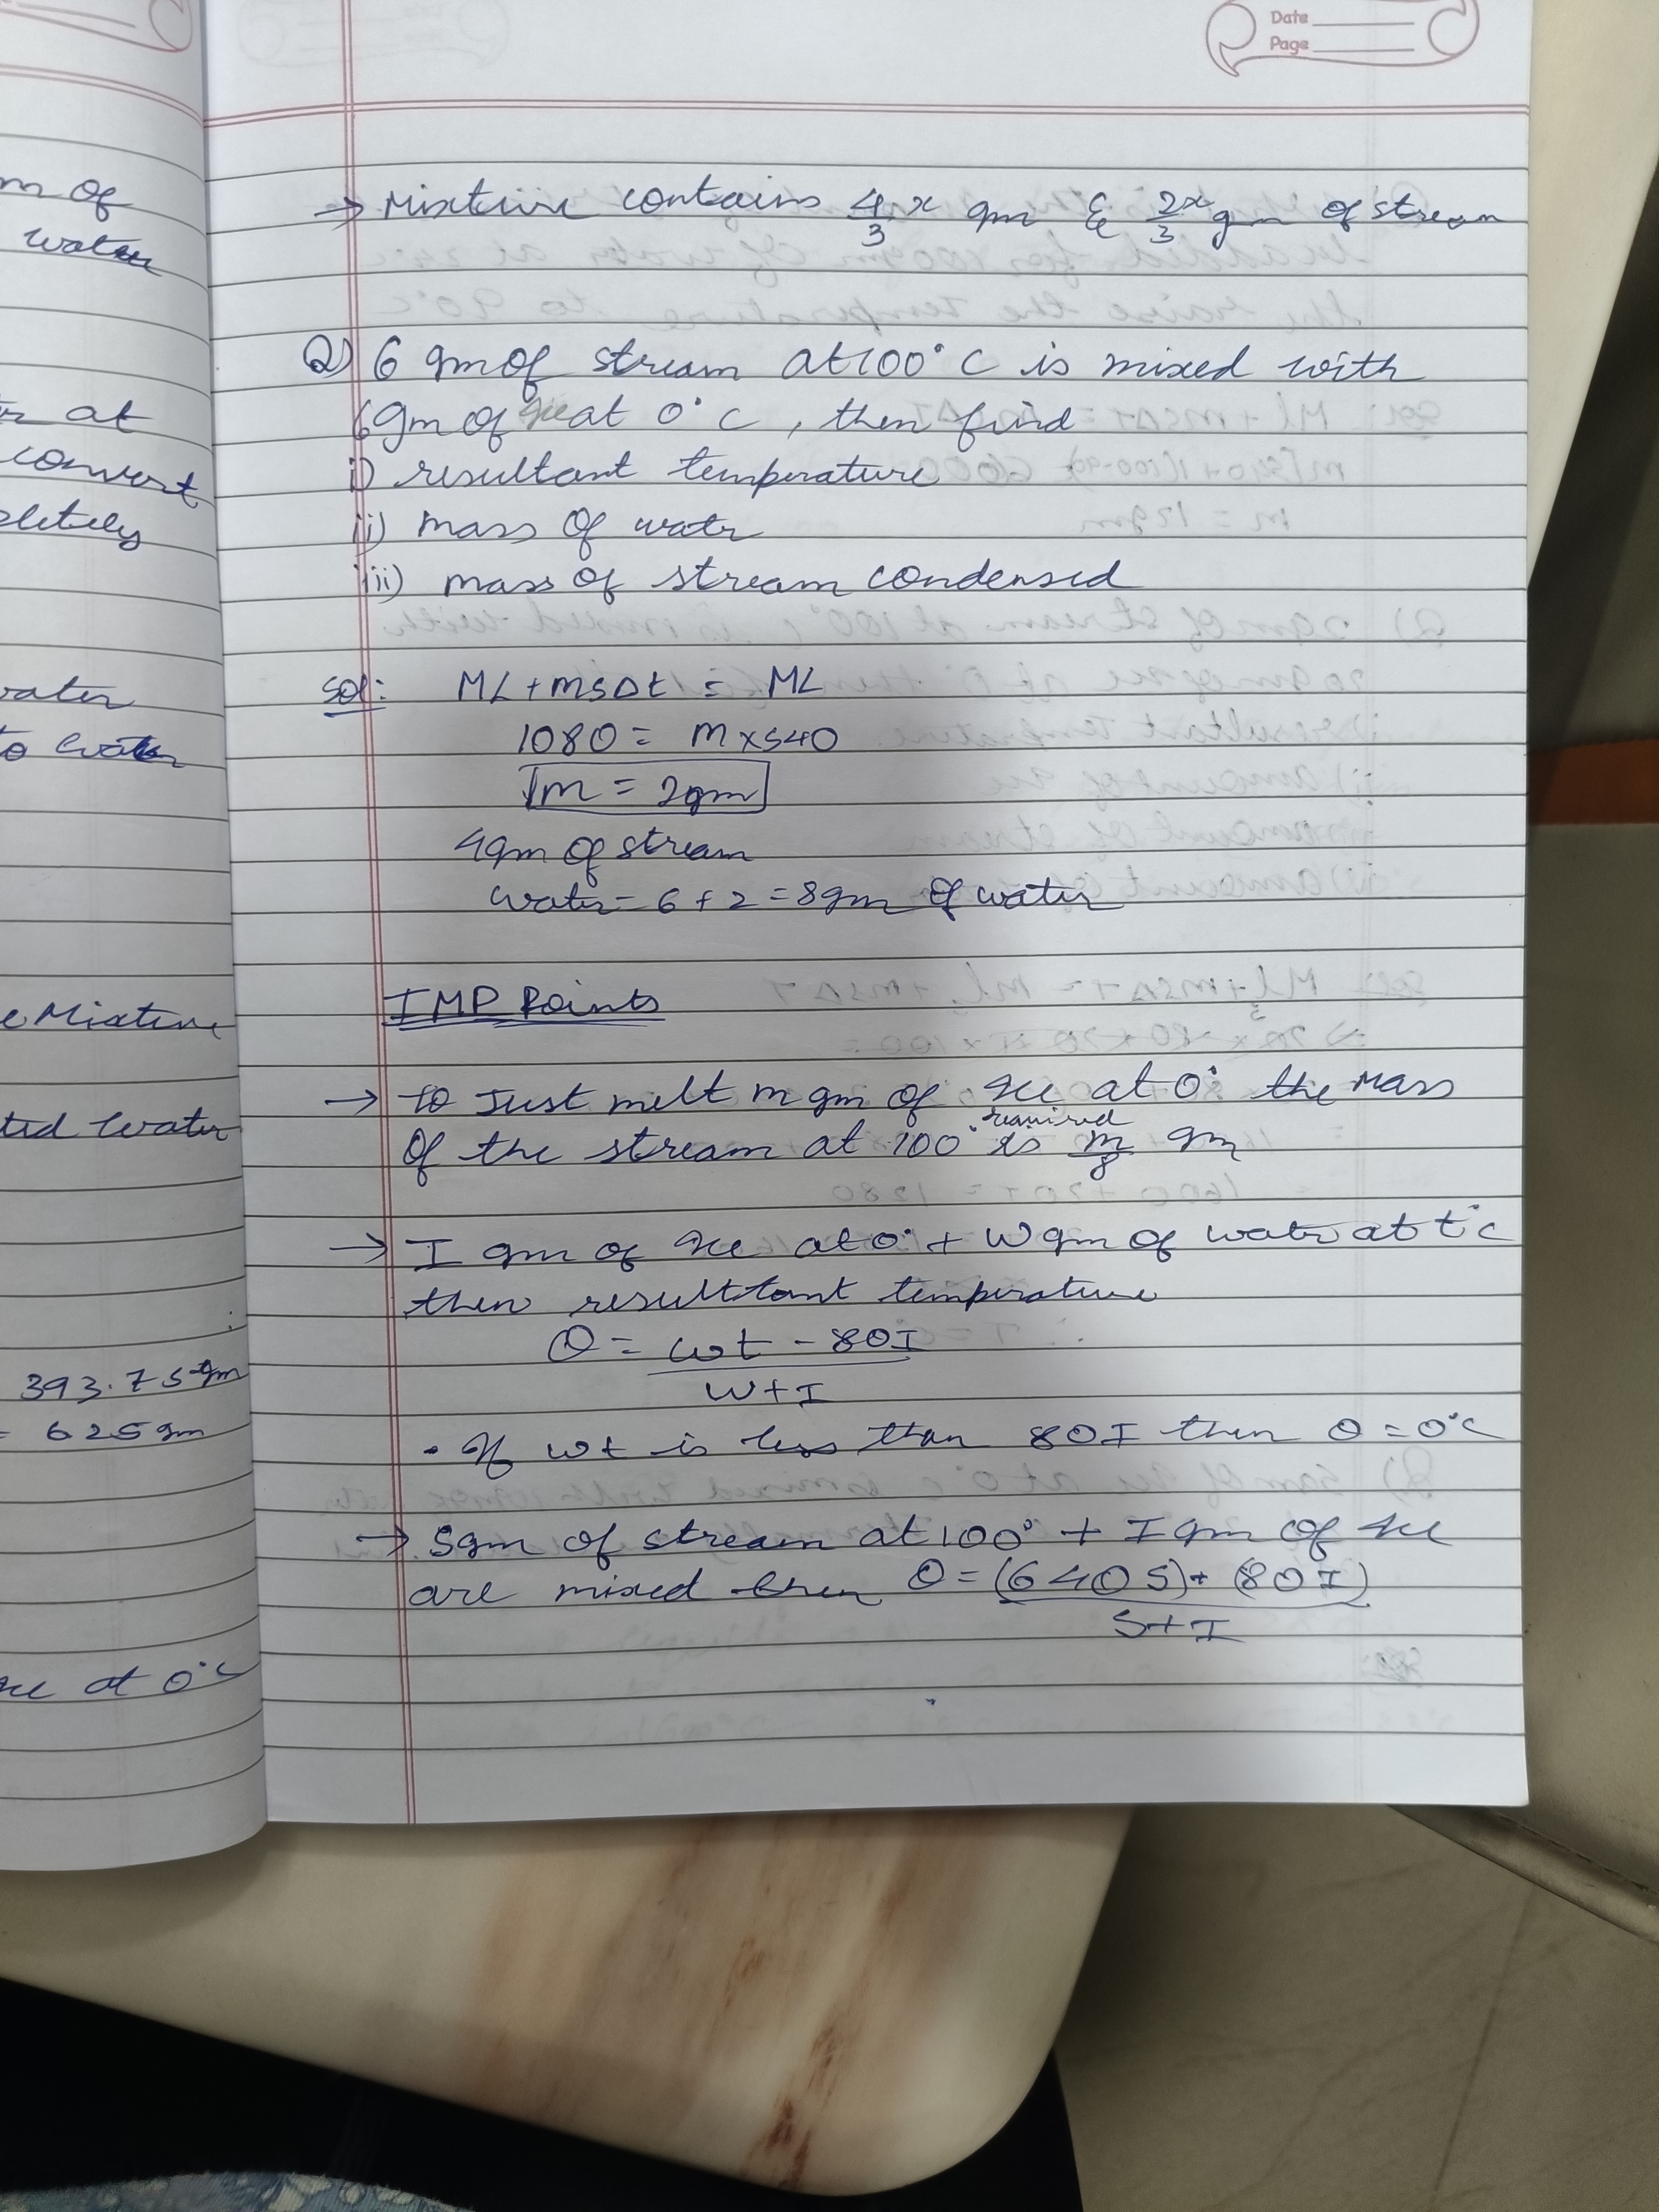 m of
water
at
convert
pletely
water
to water
e Mixture
ted water
393.75gm
= 625gm
at 0°C
Date
Page
→ Mixture contains 4/3 x gm & 2x/3 gm of stream
Q) 6 gm of stream at 100°C is mixed with
6gm of ice at 0°C, then find
i) resultant temperature
ii) mass of watr
iii) mass of stream condensed
Sol: ML + msΔt = ML
1080 = m×540
m = 2gm
4gm of stream
water = 6 + 2 = 8gm of water
IMP Points
→ to Just melt m gm of ice at 0° the mass
required
of the stream at 100° is m/8 gm
→ I gm of ice at 0° + W gm of water at t°c
then resulttant temperature
θ = wt - 80I / W+I
• If wt is less than 80I then θ = 0°C
→ Sgm of stream at 100° + I gm of ice
are mixed then θ = (640S) + (80I) / S+I